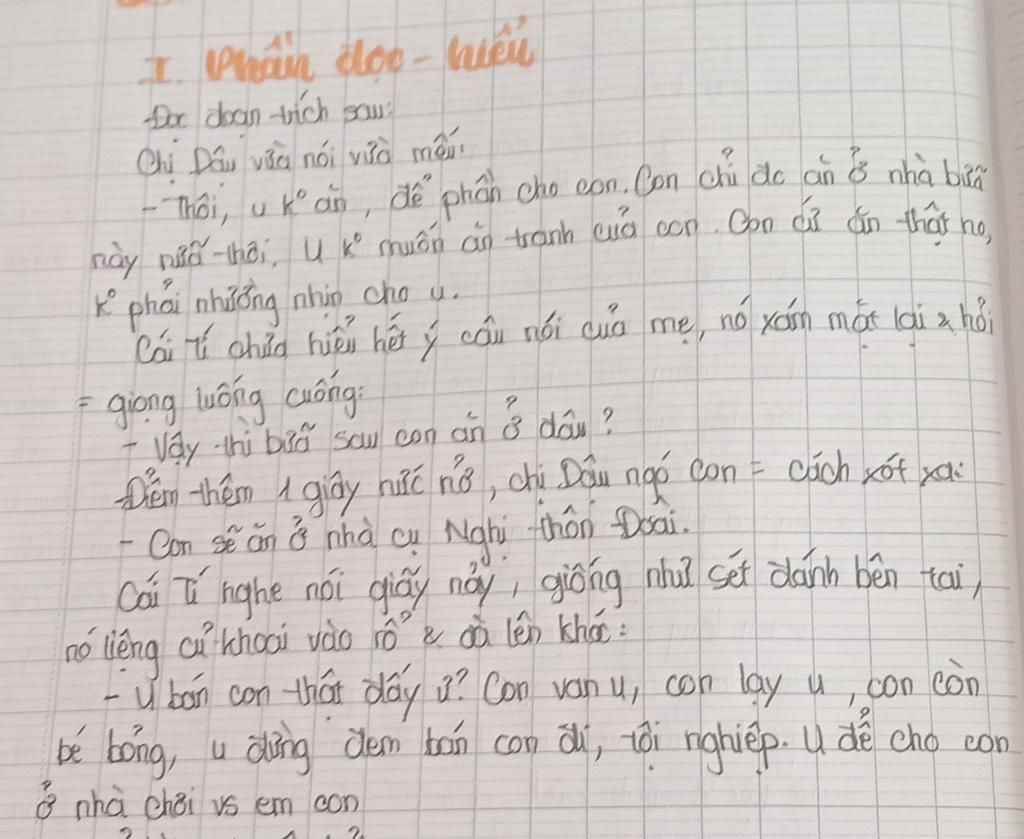 I. Phần đọc - hiểu
Đọc đoạn trích sau:
Chị Dậu vừa nói vừa mếu:
- Thôi, u kº ăn, để phần cho con. Con chỉ đc ăn ở nhà bữa
này nữa thôi. U kº muốn ăn tranh của con. Con cứ ăn thật no,
kº phải nhường nhịn cho u.
Cái Tí chưa hiểu hết ý câu nói của mẹ, nó xám mặt lại & hỏi
= giọng luống cuống:
- Vậy thì bữa sau con ăn ở đâu?
Điểm thêm 1 giây nức nở, chị Dậu ngó con = cách xót xa:
- Con sẽ ăn ở nhà cụ Nghị thôn Đoài.
Cái Tí nghe nói giãy nảy, giống như sét đánh bên tai,
nó liệng củ khoai vào rổ & oà lên khóc:
- U bán con thật đấy ư? Con van u, con lạy u, con còn
bé bỏng, u đừng đem bán con đi, tội nghiệp. U để cho con
ở nhà chơi vs em con